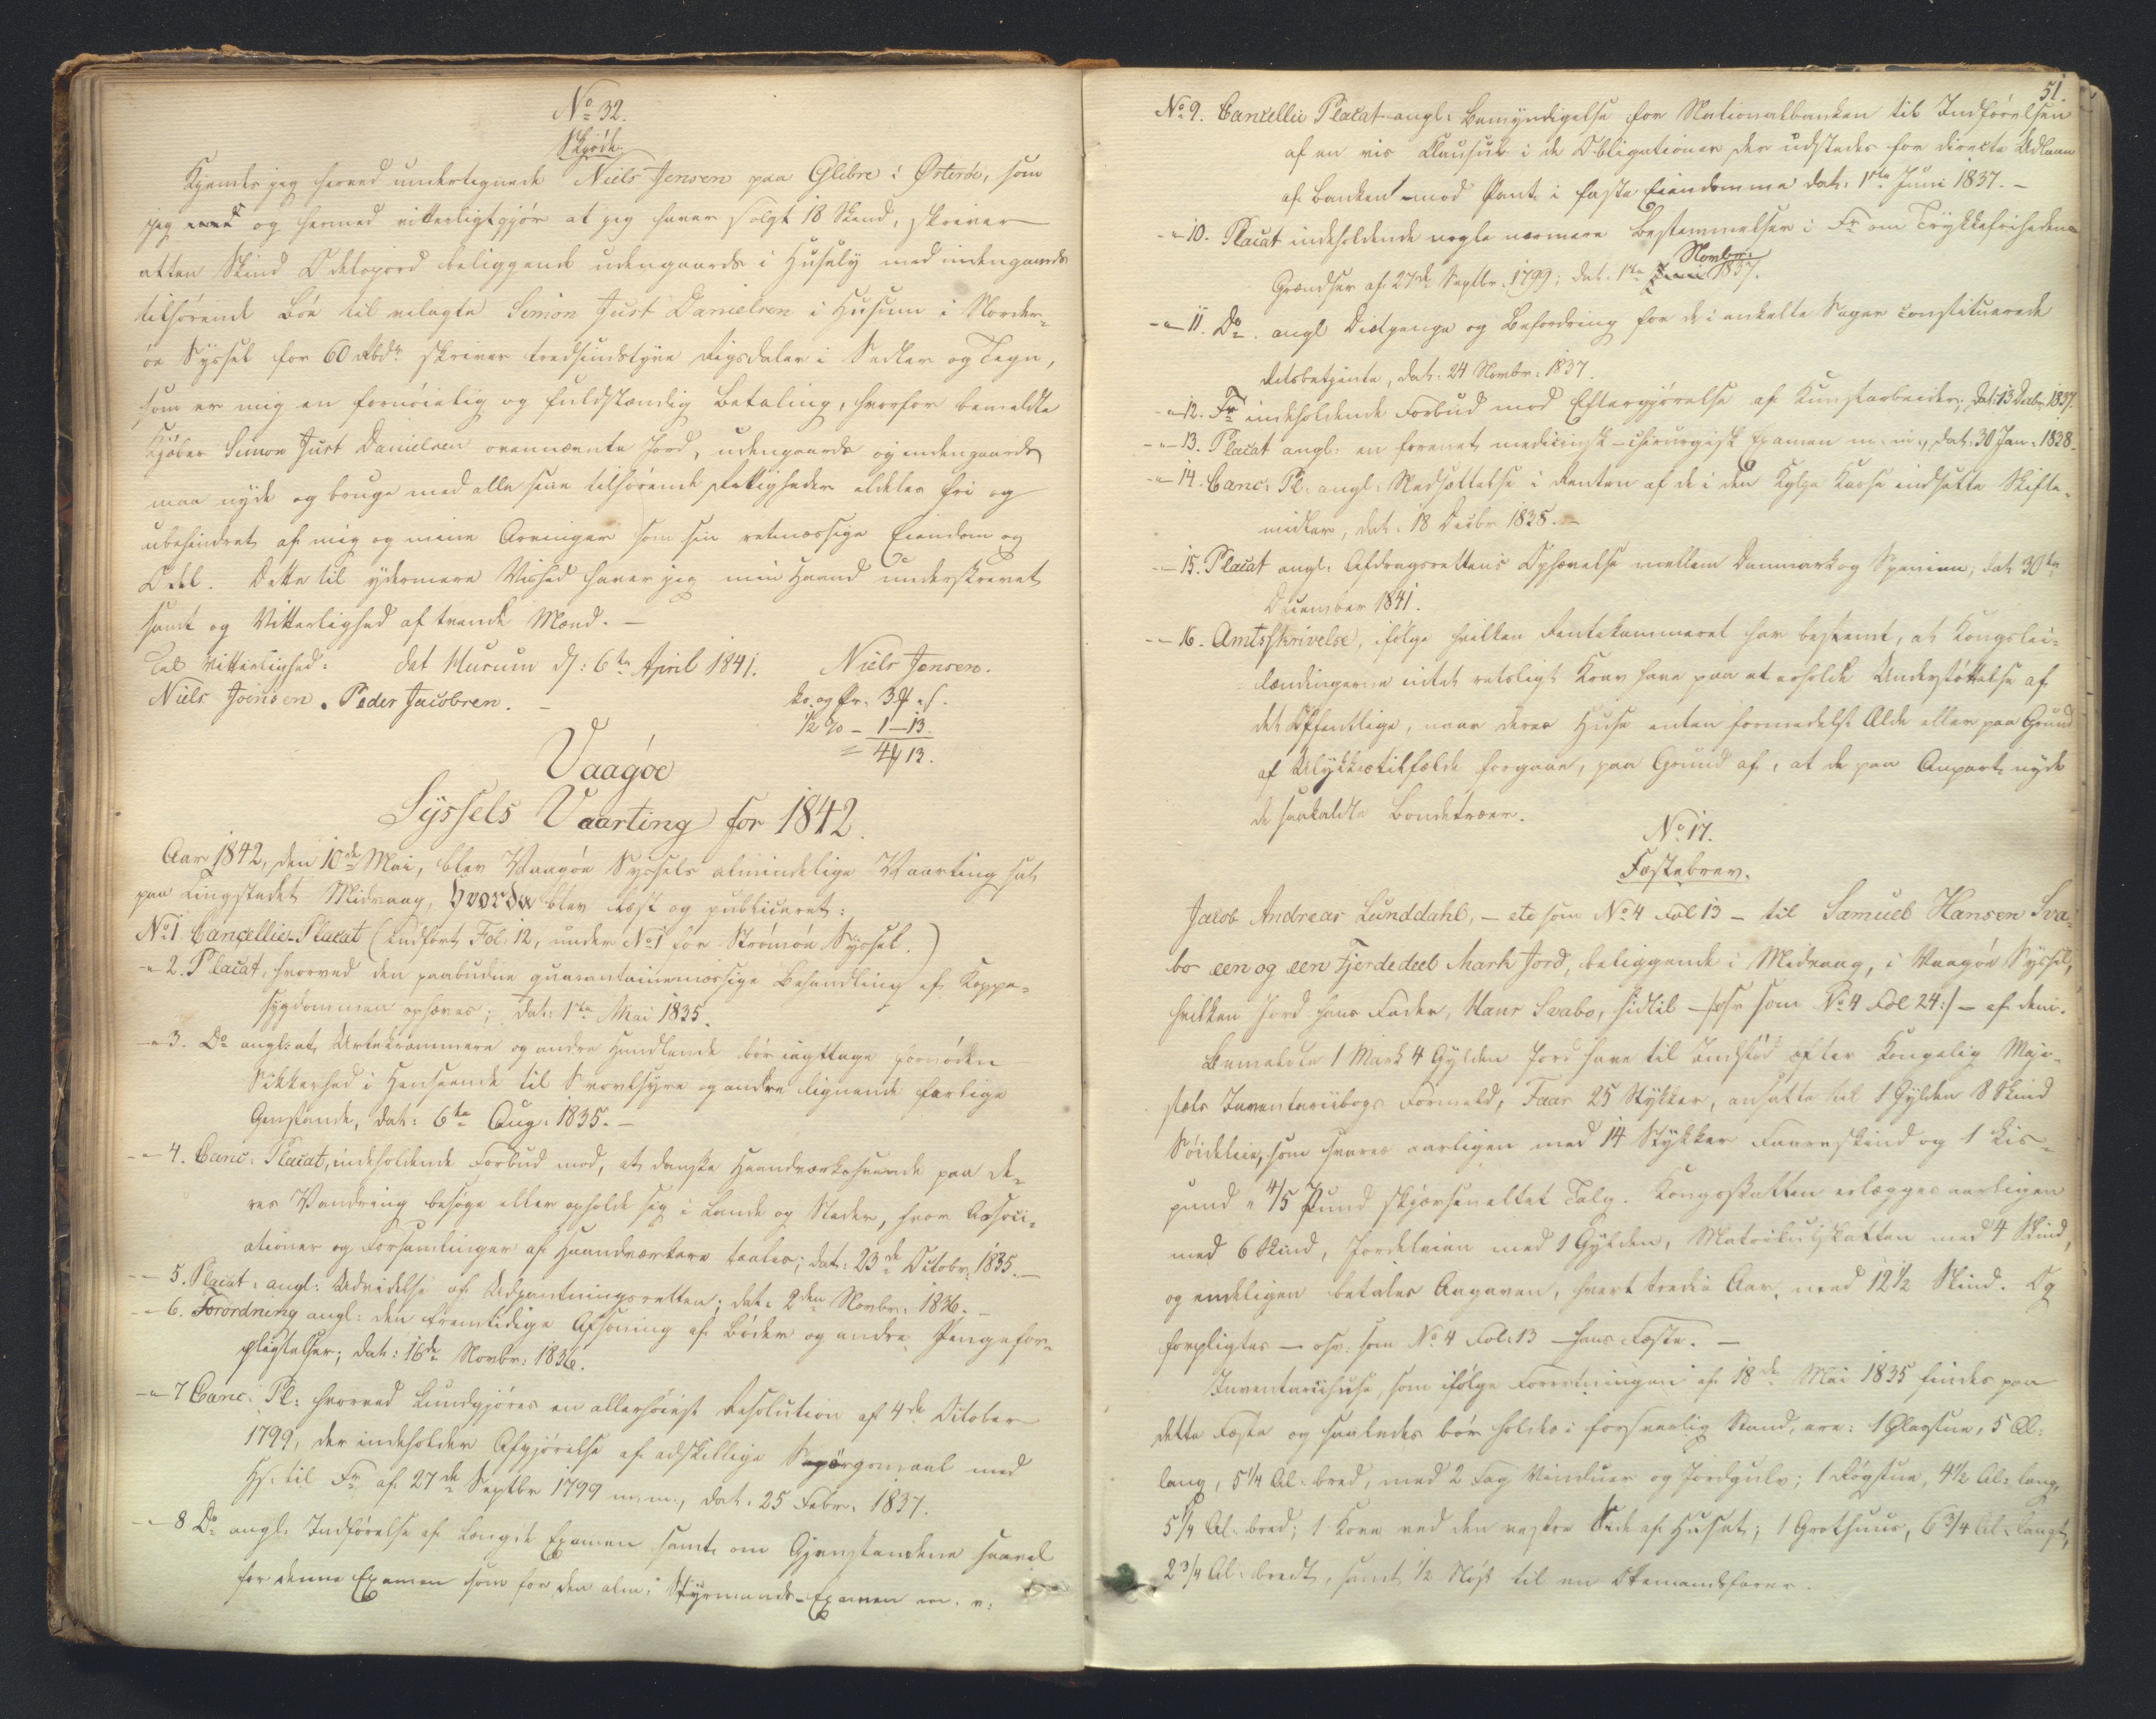 No 32.
Skjøde.
Kjendes jeg herved undertegnede Niels Jensen paa Glibre i Østerøe, som
jeg og hermed vitterligtgjør at jeg haver solgt 18 Skind, skriver
atten Skind Odelsjord beliggende udengaards i Husely med indengaards
tilhørende Bøe til velagte Simon Just Danielsen i Husum i Norder-
øe Syssel for 60 Rbdr skriver tredsindstyve Rigsdaler i Sedler og Tegn,
som er mig en fornøielig og fuldstændig Betaling, hvorfor bemeldte
Kjøber Simon Just Danielsen ovennævnte Jord, udengaards og indengaards
maa nyde og bruge med alle sine tilhørende Rettigheder aldeles fri og
ubehindret af mig og mine Arvinger som sin retmæssige Eiendom og
Odel. Dette til ydermere Vished haver jeg min Haand underskrevet
samt og Vitterlighed af tvende Mænd. —
Til Vitterlighed: Dat Husum d: 6te April 1841. Niels Jensen.
Niels Joensen. Peder Jacobsen. —
1/2 % — 1—13.
= 4 13.
Vaagøe
Syssels Vaarting for 1842.
Aar 1842, den 10de Mai, blev Vaagøe Syssels almindelige Vaarting sat
paa Tingstedet Midvaag, hvorda blev læst og publiceret:
No 1 Cancellie-Placat (indført Fol: 12, under No 1 for Strømøe Syssel.)
-"- 2. Placat, hvorved den paabudne quarantainemæssige Behandling af Koppe-
sygdommen ophæves; dat: 1ste Mai 1835.
-"- 3. Do angl: at Urtekræmmere og andre Handlende bør iagttage fornøden
Sikkerhed i Henseende til Svovlsyre og andre lignende farlige
Gjenstande, dat: 6te Aug: 1835. —
-"- 4. Canc: Placat, indeholdende Forbud mod, at danske Haandværkssvende paa de-
res Vandring besøge eller opholde sig i Lande og Steder, hvor Associ-
ationer og Forsamlinger af Haandværkere taales; dat: 23de Octobr: 1835. —
-"- 5. Placat: angl: Udvidelse af Udpantningsretten; dat: 2den Novbr: 1836. —
-"- 6. Forordning angl: den fremtidige Afsoning af Bøder og andre Pengefor-
pligtelser; dat: 16de Novbr: 1836.
-"- 7 Canc: Pl: hvorved kundgjøres en allerhøiest Resolution af 4de October
1799, der indeholder Afgjørelse af adskillige Spørgsmaal med
Hs: til Fr af 27de Septbr 1799 m.m., dat: 25 Febr. 1837.
-"- 8 Do angl: Indførelse af Længde Examen samt om Gjenstandene saavel
for denne Examen som for den alm: Styrmands-Examen m. v:
51.
No 9. Cancellie Placat angl: Bemyndigelse for Nationalbanken til Indførelsen
af en vis Klausul i de Obligationer der udstedes for directe Udlaan
af Banken mod Pant i faste Eiendomme dat: 1ste Juni 1837. —
-"- 10. Placat indeholdende nogle nærmere Bestemmelser i Fr om Trykkefrihedens
Novbr:
Grændser af 27de Septbr. 1799; dat: 1ste Juni 1837.
-"- 11. Do. angl Diætpenge og Befordring for de i enkelte Sager constituerede
Retsbetjente, dat: 24 Novbr: 1837.
-"- 12. Fr indeholdende Forbud mod Eftergjørelse af Kunstarbeider; dat: 13 Decbr: 1837.
-"- 13. Placat angl: en forenet medicinsk-chirurgisk Examen m. m., dat: 30 Jan: 1838.
-"- 14. Canc: Pl: angl: Nedsættelse i Renten af de i den Kglge Kasse indsatte Skifte-
midler, dat: 18 Decbr 1838. —
-"- 15. Placat angl: Afdragsrettens Ophævelse mellem Danmark og Spanien, dat 30te
December 1841.
-"- 16. Amtsskrivelse, ifølge hvilken Rentekammeret har bestemt, at Kongslei-
lændingerne intet retsligt Krav have paa at erholde Understøttelse af
det Offentlige, naar deres Huse enten formedelst Ælde eller paa Grund
af Ulykkestilfælde forgaae, paa Grund af, at de paa Anpart nyde
de saakaldte Bondetræer.
No 17.
Fæstebrev.
Jacob Andreas Lunddahl, — etc som No 4 Fol 13 — til Samuel Hansen Sva-
bo een og een Fjerdedeel Mark Jord, beliggende i Midvaag, i Vaagøe Syssel,
hvilken Jord hans Fader, Hans Svabo, hidtil — /: osv som No 4 Fol 24:/ — af dem.
Bemeldte 1 Mark 4 Gylden Jord have til Indstød efter Kongelig Maje-
stæts Inventariibogs Formeld, Faar 25 Stykker, ansatte til 1 Gylden 8 Skind
Søideleie, som svares aarligen med 14 Stykker Faareskind og 1 Lis-
pund " 4/5 Pund skjærsmeltet Talg. Kongsskatten erlægges aarligen
med 6 Skind, Jordeleien med 1 Gylden, Matrikulskatten med 4 Skind,
og endeligen betales Aagaven, hvert tredie Aar, med 12½ Skind. Og
forpligtes — osv: som No 4 Fol: 13 — hans Fæste. —
Inventariihuse, som ifølge Forretningen af 18de Mai 1835 findes paa
dette Fæste og saaledes bør holdes i forsvarlig Stand, ere: 1 Glasstue, 5 Al:
lang, 5¼ Al: bred, med 2 Fag Vinduer og Jordgulv; 1 Røgstue, 4½ Al: lang,
5¼ Al: bred; 1 Kove ved den vestre Side af Huset; 1 Grothuus, 6¾ Al: langt,
2¾ Al: bredt, samt ½ Nøst til en Ottemandsfarer.